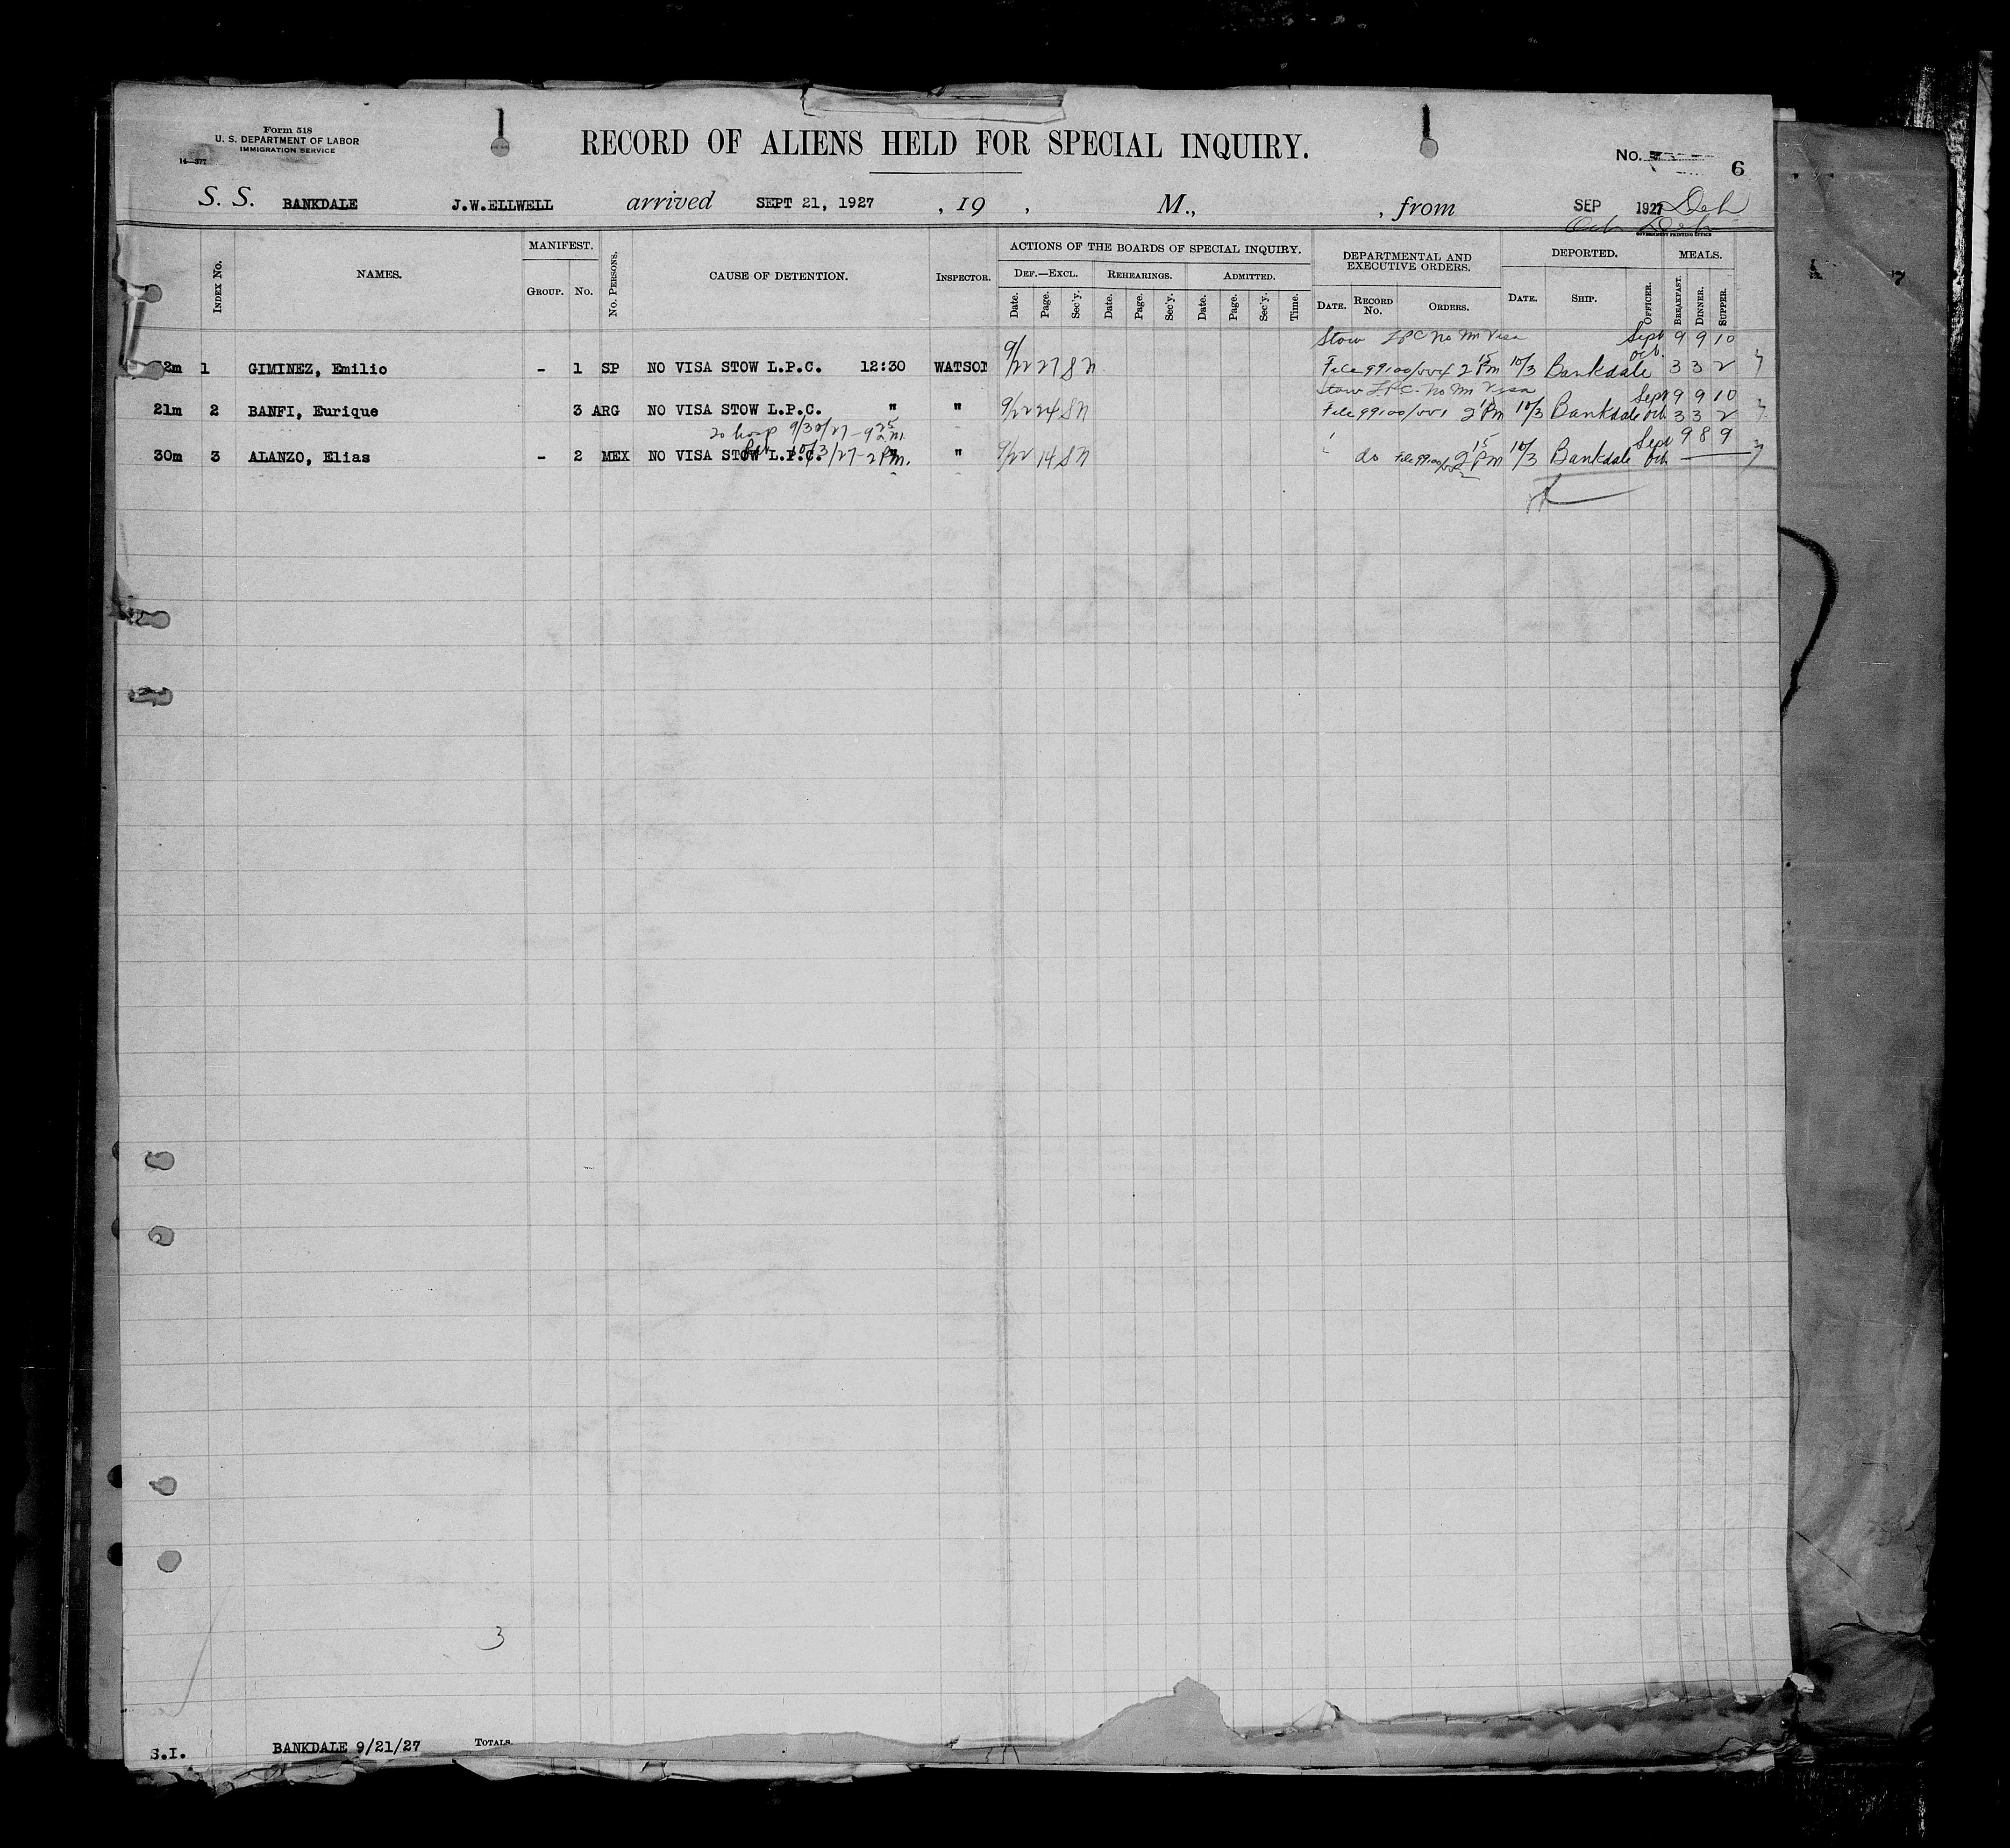 Form 518
U. S. DEPARTMENT OF LABOR
IMMIGRATION SERVICE
14—377
RECORD OF ALIENS HELD FOR SPECIAL INQUIRY.
No. 6
S. S. BANKDALE J.W.ELLWELL arrived SEPT 21, 1927 , 19 , M., , from SEP 1927 Deh
GOVERNMENT PRINTING OFFICE
INDEX No. NAMES. MANIFEST. GROUP. No. No. PERSONS. CAUSE OF DETENTION. INSPECTOR.
ACTIONS OF THE BOARDS OF SPECIAL INQUIRY.
DEF.—EXCL. REHEARINGS. ADMITTED.
Date. Page. Sec'y. Date. Page. Sec'y. Date. Page. Sec'y. Time.
DEPARTMENTAL AND EXECUTIVE ORDERS.
DATE. RECORD No. ORDERS.
DEPORTED.
DATE. SHIP. OFFICER.
MEALS.
BREAKFAST. DINNER. SUPPER.
Stow LPC No Im Visa Sept 9 9 10
2m 1 GIMINEZ, Emilio - 1 SP NO VISA STOW L.P.C. 12:30 WATSON 9/22 27 S N File 2 15 PM 10/3 Bankdale Oct. 3 3 2
Stow L.P.C. No Im Visa Sept 9 9 10
21m 2 BANFI, Eurique 3 ARG NO VISA STOW L.P.C. " " 9/22 24 S N File 2 15 PM 10/3 Bankdale Oct. 3 3 2
To hosp 9/30/27 - 9 25 a.m. Sept 9 8 9
30m 3 ALANZO, Elias - 2 MEX NO VISA STOW L.P.C. 10/3/27 - 2 P.M. " 9/22 14 S N do File 2 15 PM 10/3 Bankdale Oct
3
S.I. BANKDALE 9/21/27 TOTALS